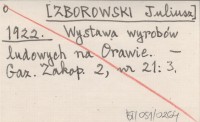 o [ZBOROWSKI Juliusz]
1922. Wystawa wyrobów
ludowych na Orawie. —
Gaz. Zakop. 2, nr 21: 3.